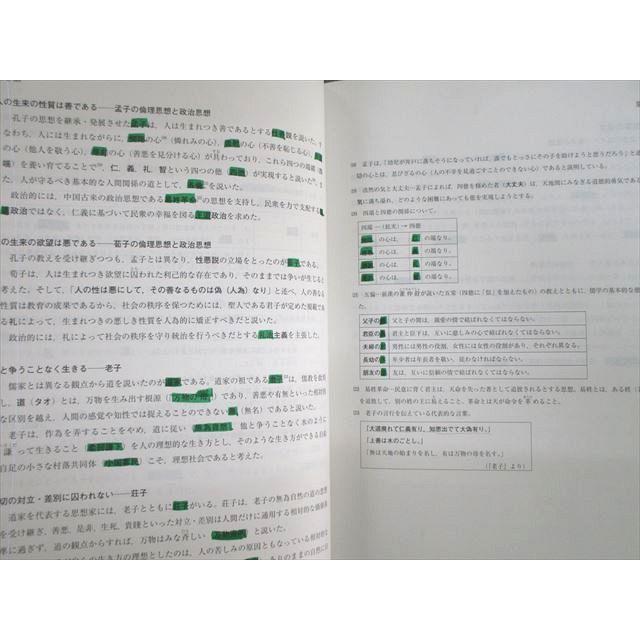 人の生来の性質は善である――孟子の倫理思想と政治思想
孔子の思想を継承・発展させた孟子は、人は生まれつき善であるとする性善説を説いた。す
なわち、人には生まれながらに、の心（憐れみの心）、の心（不善を恥じる心）、
の心（他人を敬う心）、の心（善悪を見分ける心）が具わっており、これら四つの端緒（
端）を養い育てることで、仁、義、礼、智という四つの徳（）が実現すると説いた。ま
た、人が守るべき基本的な人間関係の道として、を説いた。
政治的には、中国古来の政治思想であるの思想を支持し、民衆を力で支配する
政治ではなく、仁義に基づいて民衆の幸福を図る王道政治を求めた。
の生来の欲望は悪である――荀子の倫理思想と政治思想
孔子の教えを受け継ぎつつも、孟子とは異なり、性悪説の立場をとったのが荀子である。
荀子は、人は生まれつき欲望に囚われた利己的な存在であり、そのままでは争いが生じると
考えた。そして、「人の性は悪にして、その善なるものは偽（人為）なり」と述べ、人の善な
性質は教育の成果であるから、社会の秩序を保つためには、聖人である君子が定めた規範であ
る礼によって、生まれつきの悪しき性質を人為的に矯正すべきだと説いた。
政治的には、礼によって社会の秩序を守り統治を行うべきだとする礼治主義を主張した。
と争うことなく生きる――老子
儒家とは異なる観点から道を説いたのが道家である。道家の祖である老子は、儒教を批
し、道（タオ）とは、万物を生み出す根源（「万物の母」）であり、善悪や有無といった相対的
な区別を越え、人間の感覚や知性では捉えることのできない無（無名）であると説いた。
老子は、作為を弄することをやめ、道に従い（無為自然）、他と争うことなく水のように
謙って生きること（柔弱謙下）を人の理想的な生き方とし、そのような生き方ができる自給
自足の小さな村落共同体（小国寡民）こそ、理想社会であると考えた。
切の対立・差別に囚われない――荘子
道家を代表する思想家には、老子とともに荘子がいる。荘子は、老子の無為自然の道の思想
を受け継ぎ、善悪、是非、生死、貴賤といった対立・差別は人間だけに通用する相対的な価値基
準に過ぎず、道の観点からすれば、万物はみな斉しい（万物斉同）と説いた。
らの生き方の理想としたのは、人の苦しみの原因ともなっている相対的な
ありのままの自然に
孟子は、「幼児が井戸に落ちそうになっていれば、誰でもとっさにその子を助けようと思うだろう」と述
惻隠の心とは、忍びざるの心（人の不幸を見過ごすことのできない心）であると説明している。
浩然の気と大丈夫―孟子によれば、四徳を極めた者（大丈夫）は、天地間にみなぎる道徳的勇気であ
気に満ち溢れ、どのような困難にあっても徳を実現しようとする。
四端と四徳の関係について。
四端→（拡充）→四徳
の心は、の端なり。
の心は、の端なり。
の心は、の端なり。
の心は、の端なり。
五倫―前漢の董仲舒が説いた五常（四徳に「信」を加えたもの）の教えとともに、儒学の基本的な徳
父子の 父と子の間は、親愛の情で結ばれなくてはならない。
君臣の 君主と臣下は、互いに慈しみの心で結ばれなくてはならない。
夫婦の 男性には男性の役割、女性には女性の役割があり、それぞれ異なる。
長幼の 年少者は年長者を敬い、従わなければならない。
朋友の 友は、互いに信頼の情で結ばれなくてはならない。
易姓革命―民意に背く君主は、天命を失った者として追放されるとする思想。易姓とは、ある姓（王
を追放して、別の姓の王に易えること、革命とは天が命令を革めること。
老子の言行を伝えている代表的な言葉。
「大道廃れて仁義有り、知恵出でて大偽有り。」
「上善は水のごとし。」
「無は天地の始まりを名し、有は万物の母を名す。」
（『老子』より）